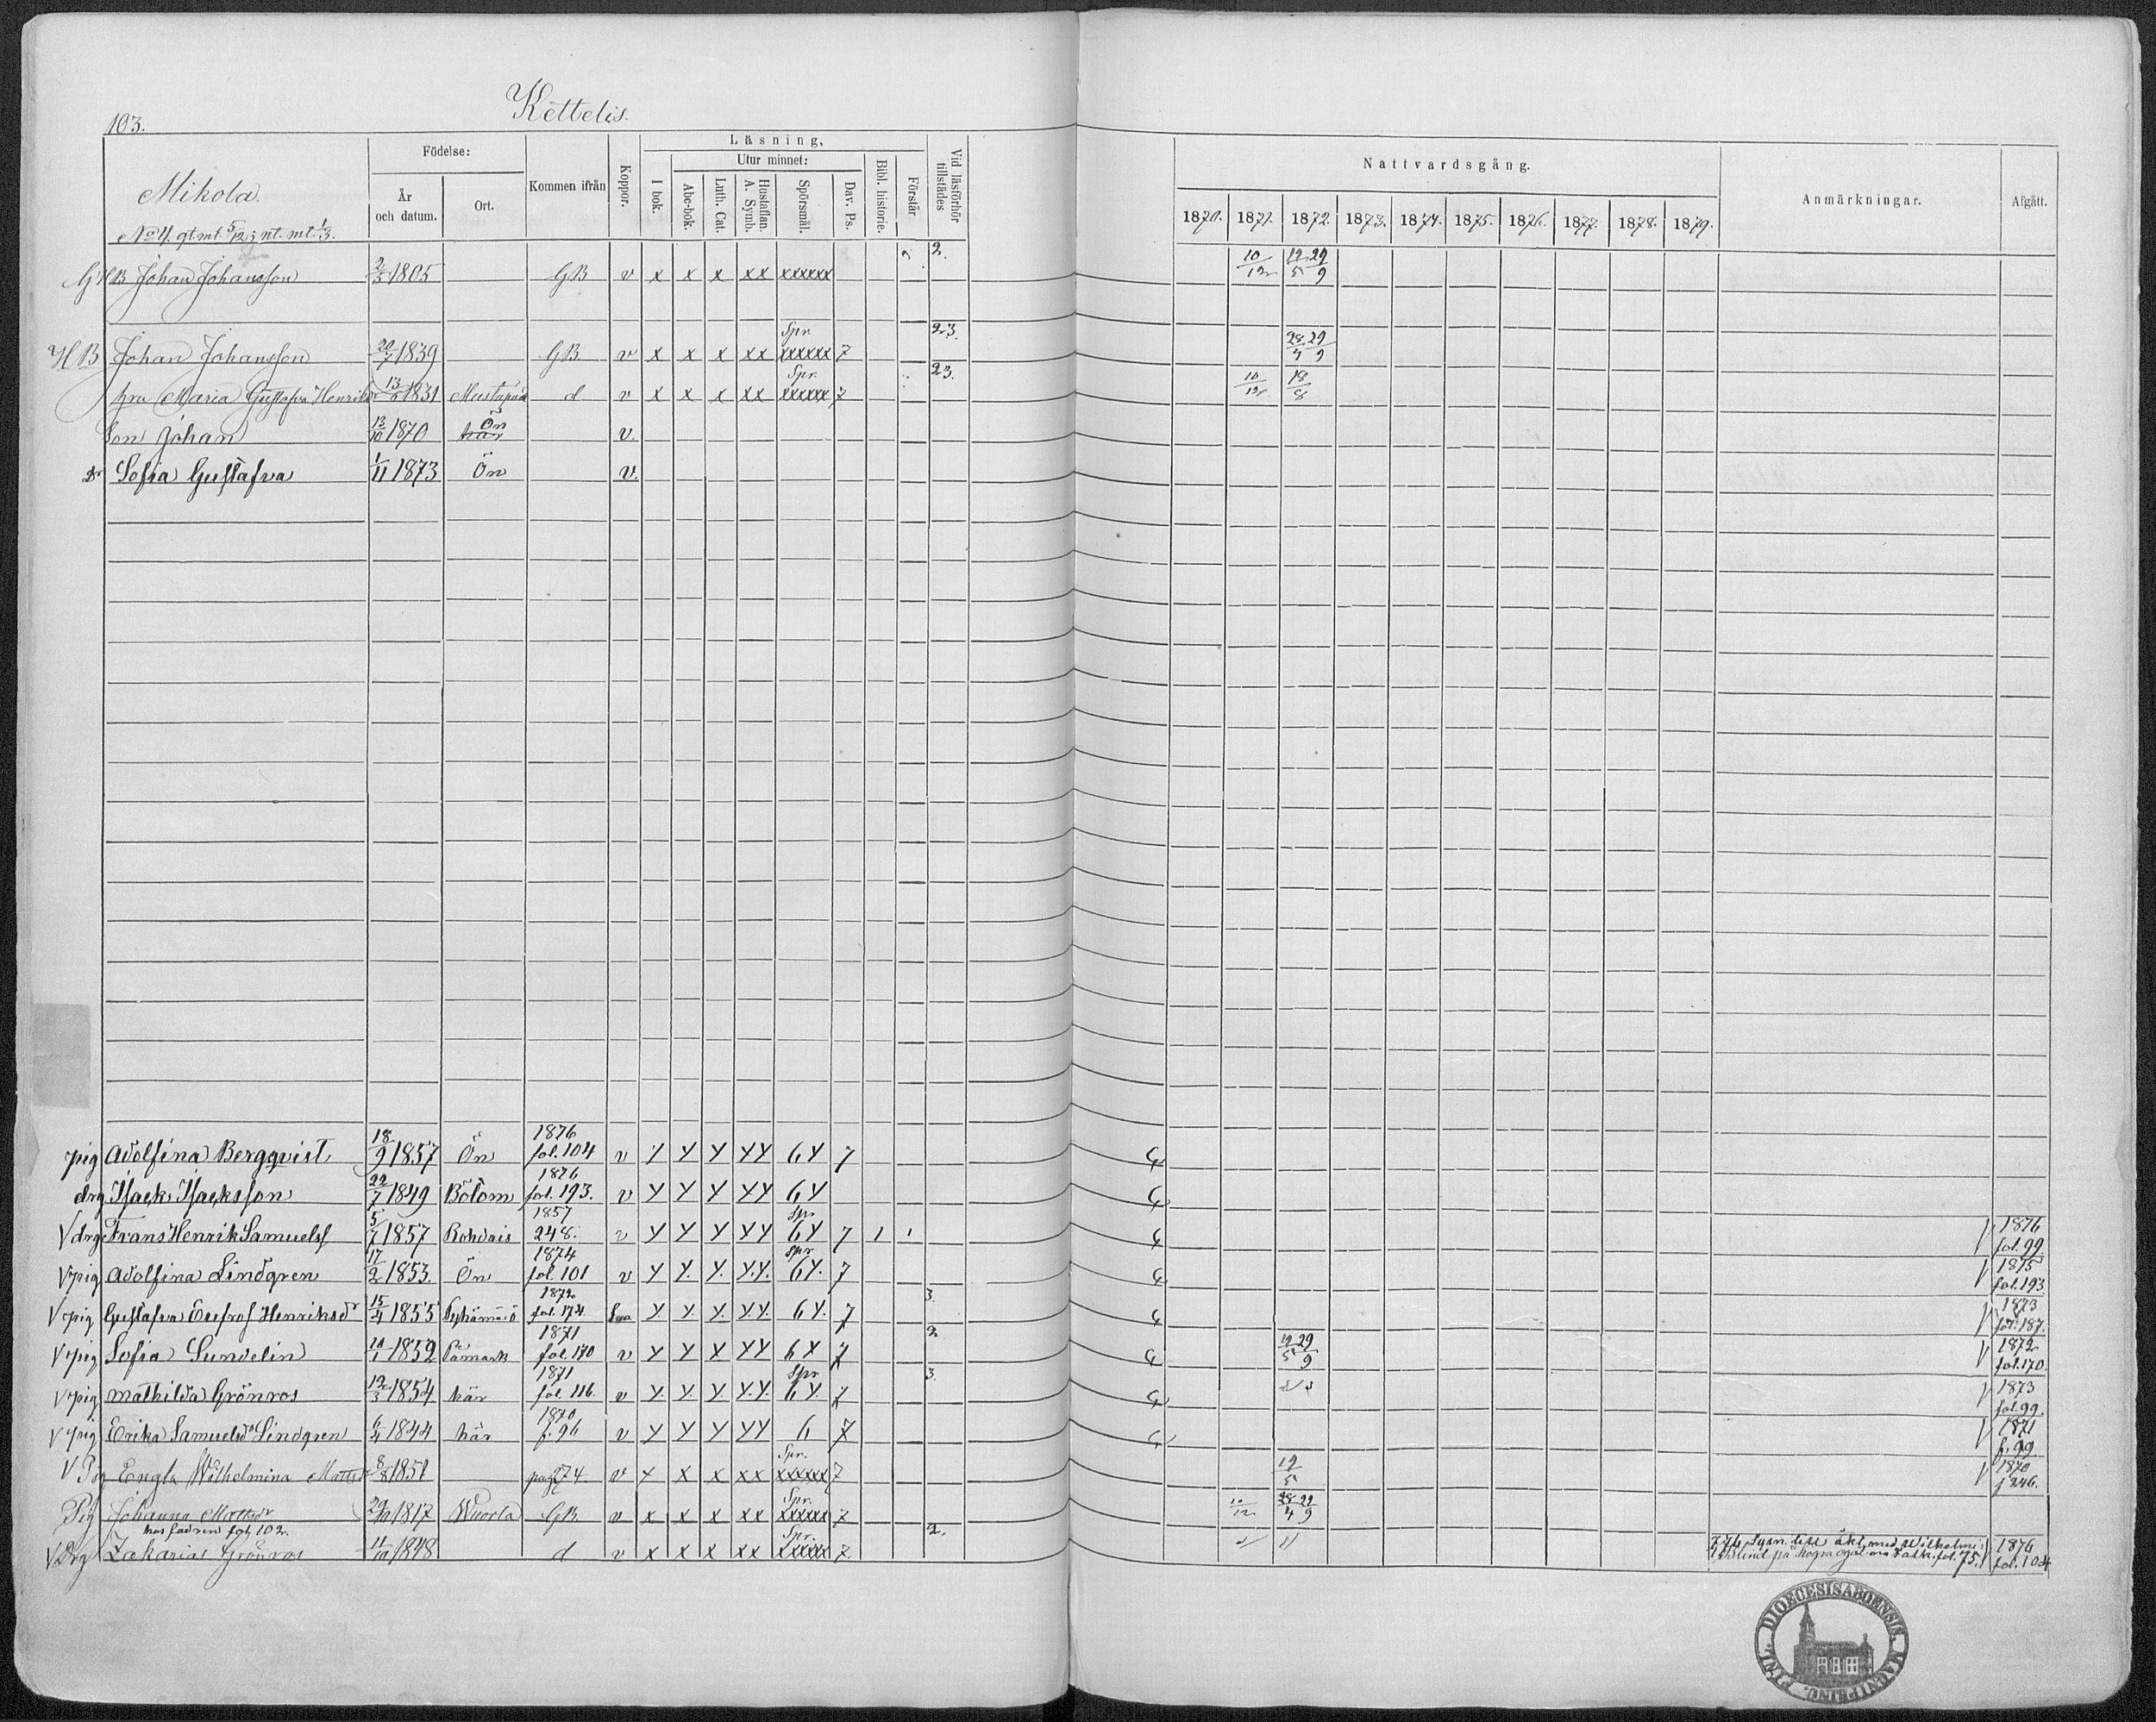 103.
Kettelis.
Mikola.
No 4. gt. mt. 5/12; nt. mt. 1/3.
Födelse: År och datum. Ort. Kommen ifrån Koppor. Läsning. I bok. Utur minnet: Abc-bok. Luth. Cat. Hustaflan. A. Symb. Spörsmål. Dav. Ps. Bibl. historie. Förstår Vid läsförhör tillstädes
Nattvardsgång. Anmärkningar. Afgått.
1870. 1871. 1872. 1873. 1874. 1875. 1876. 1877. 1878. 1879.
Johan Johansson 2/5 1805 GB v x x x xx xxxxxx 2. 10/12 12/5 29/9
HB Johan Johansson 20/7 1839 GB v x x x xx Spr. xxxxxx 7 23. 28/4 29/9
hru Maria Gustafva 1831 d v x x x xx Spr. xxxxxx 7 23. 10/12 18/8
Son Johan 13/10 1870 här Ön v.
dr Sofia Gustafva 1/11 1873 Ön v.
pig Adolfina Bergqvist 18/9 1857 Ön 1876 fol. 104 v y y y yy 6y 7
drg Isack Isacksson 22/7 1849 Bötom 1876 fol. 193. v y y y yy 6y
V drg Frans Henrik Samuelsf 5/7 1857 Rohdais 1857 248. v y y y yy Spr 6y 7 1 1 1876 fol. 99.
V pig Adolfina Lindgren 17/2 1853. Ön 1874 fol. 101 v y y. y. y.y. Spr 6y. 7 1875 fol. 193.
V pig Gustafva Eufros Henriksdr 15/4 1855 1872 fol. 174 y. y. y. y.y. 6y. 7 3. 1873 fol. 187.
V pig Sofia Sundelin 10/1 1852 Påmark 1871 fol. 170 v y y y yy 6y 7 2 12/5 29/9 1872 fol. 170.
V pig Mathilda Grönros 12/3 1854 här 1871 fol. 116. v y. y. y. y.y. Spr 6y. 7 3. 1873 fol. 99.
V pig Erika Samuelsdr Lindgren 6/4 1844 här 1870 f. 96 v y y y yy 6 7 1871 f. 99
V Pig Engla Wilhelmina Mattsdr 8/8 1851 pag 274 v x x x xx Spr. xxxxxx 7 12/5 1870 f 246.
Pig Johanna Mattsdr 29/10 1817 Wuorla GB v x x x xx Spr. xxxxxx 7 10/12 28/4 29/9
hos fadren fol. 102.
V Drg Zakarias Grönros 11/10 1848 d v x x x xx Spr. xxxxxx 7. 2. Lysn. till äkt. med Wilhelmina fol. 75. 1876 fol. 104
SIGILL. DIOECESIS ABOENSIS.